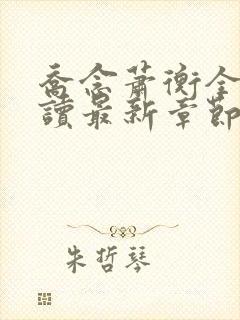 喬念蕭衡全
讀最新章節
朱哲琴